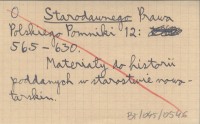 O Starodawnego Prawa
Polskiego Pomniki 12:
565-630.
Materiały do historii
poddanych w starostwie nowo-
tarskim.